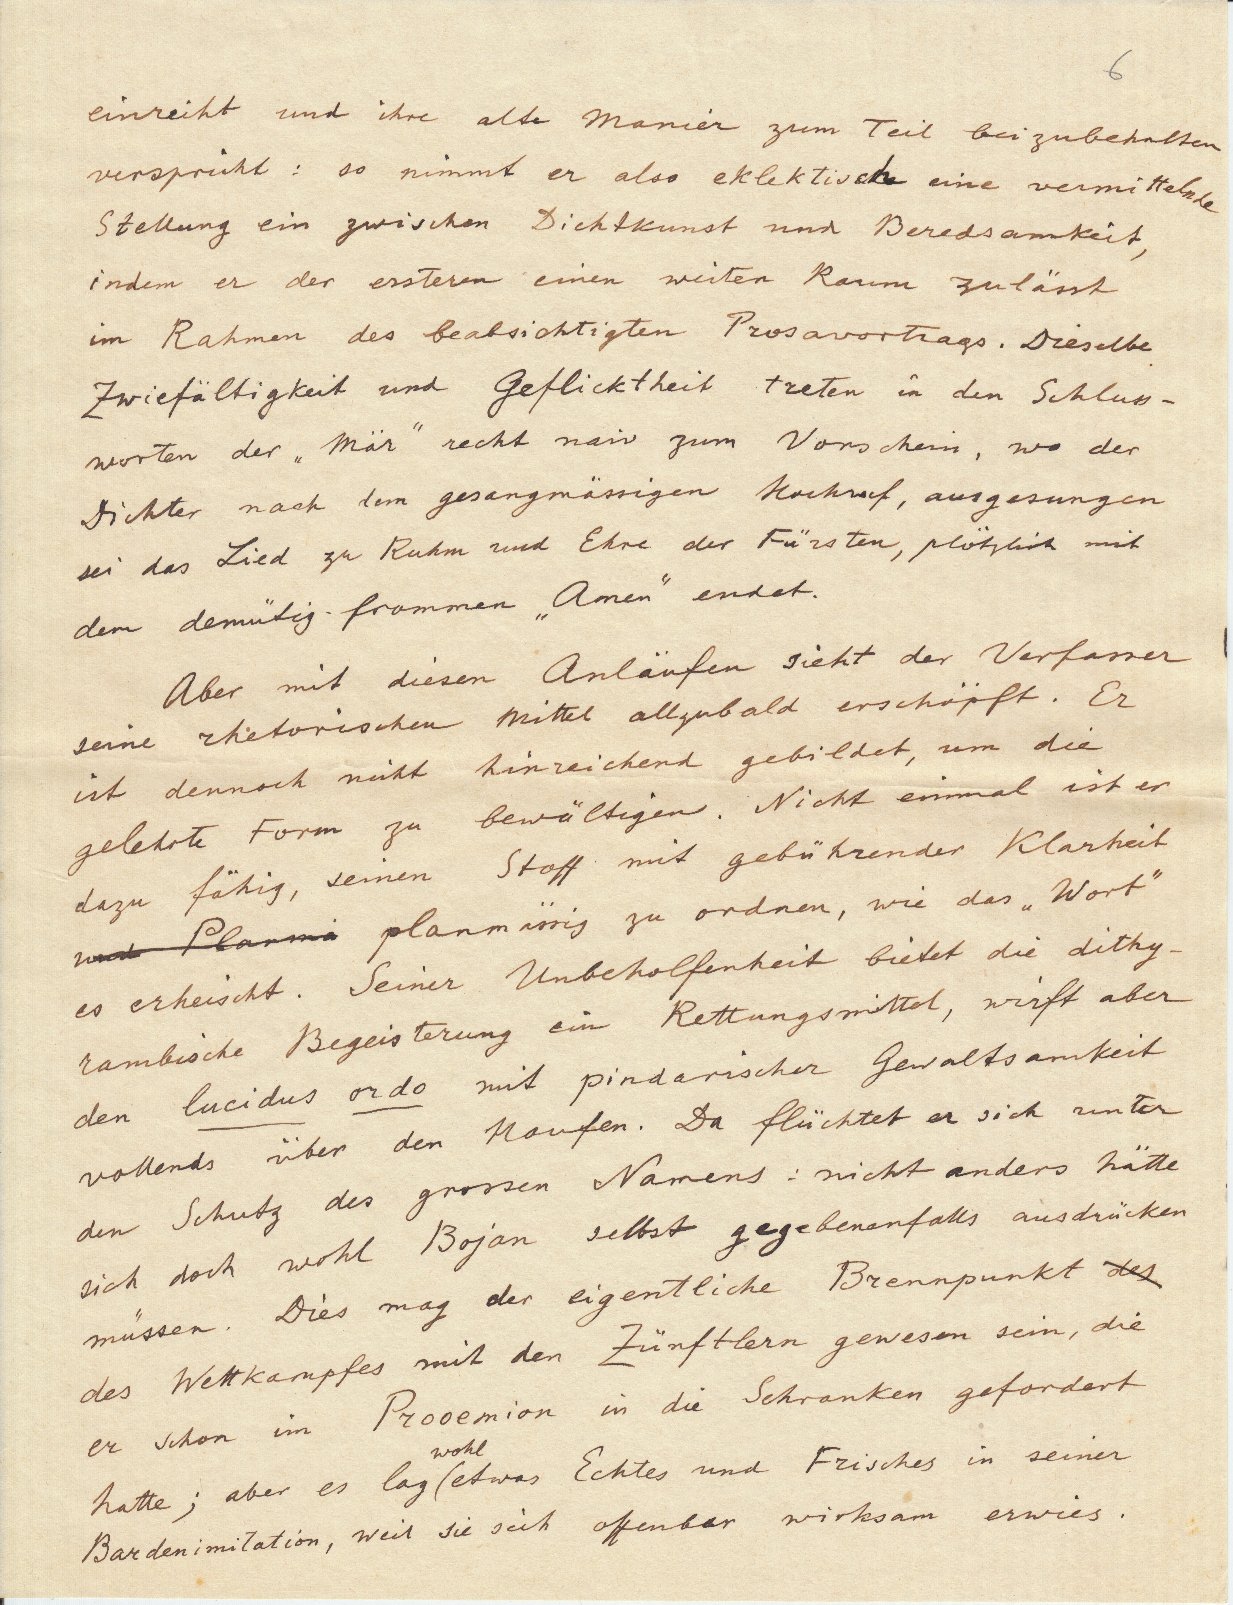 6
einreiht und ihre alte Manier zum Teil beizubehalten
verspricht : so nimmt er also eklektisch eine vermittelnde
Stellung ein zwischen Dichtkunst und Beredsamkeit,
indem er der ersteren einen weiten Raum zulässt
im Rahmen des beabsichtigten Prosavortrags. Dieselbe
Zwiefältigkeit und Geflicktheit treten in den Schluss-
worten der „Mär" recht naiv zum Vorschein, wo der
Dichter nach dem gesangmässigen Hochruf, ausgesungen
sei das Lied zu Ruhm und Ehre der Fürsten, plötzlich mit
dem demütig-frommen „Amen" endet.
Aber mit diesen Anläufen sieht der Verfasser
seine rhetorischen Mittel allzubald erschöpft. Er
ist dennoch nicht hinreichend gebildet, um die
gelehrte Form zu bewältigen. Nicht einmal ist er
dazu fähig, seinen Stoff mit gebührender Klarheit
und Planmä planmässig zu ordnen, wie das „Wort"
es erheischt. Seiner Unbeholfenheit bietet die dithy-
rambische Begeisterung ein Rettungsmittel, wirft aber
den lucidus ordo mit pindarischer Gewaltsamkeit
vollends über den Haufen. Da flüchtet er sich unter
den Schutz des grossen Namens : nicht anders hätte
sich doch wohl Bojan selbst gegebenenfalls ausdrücken
müssen. Dies mag der eigentliche Brennpunkt des
des Wettkampfes mit den Zünftlern gewesen sein, die
er schon im Prooemion in die Schranken gefordert
hatte ; aber es lag wohl etwas Echtes und Frisches in seiner
Bardenimitation, weil sie sich offenbar wirksam erwies.